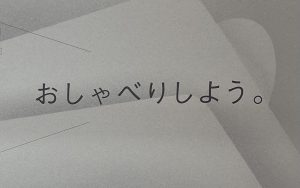 おしゃべりしよう。